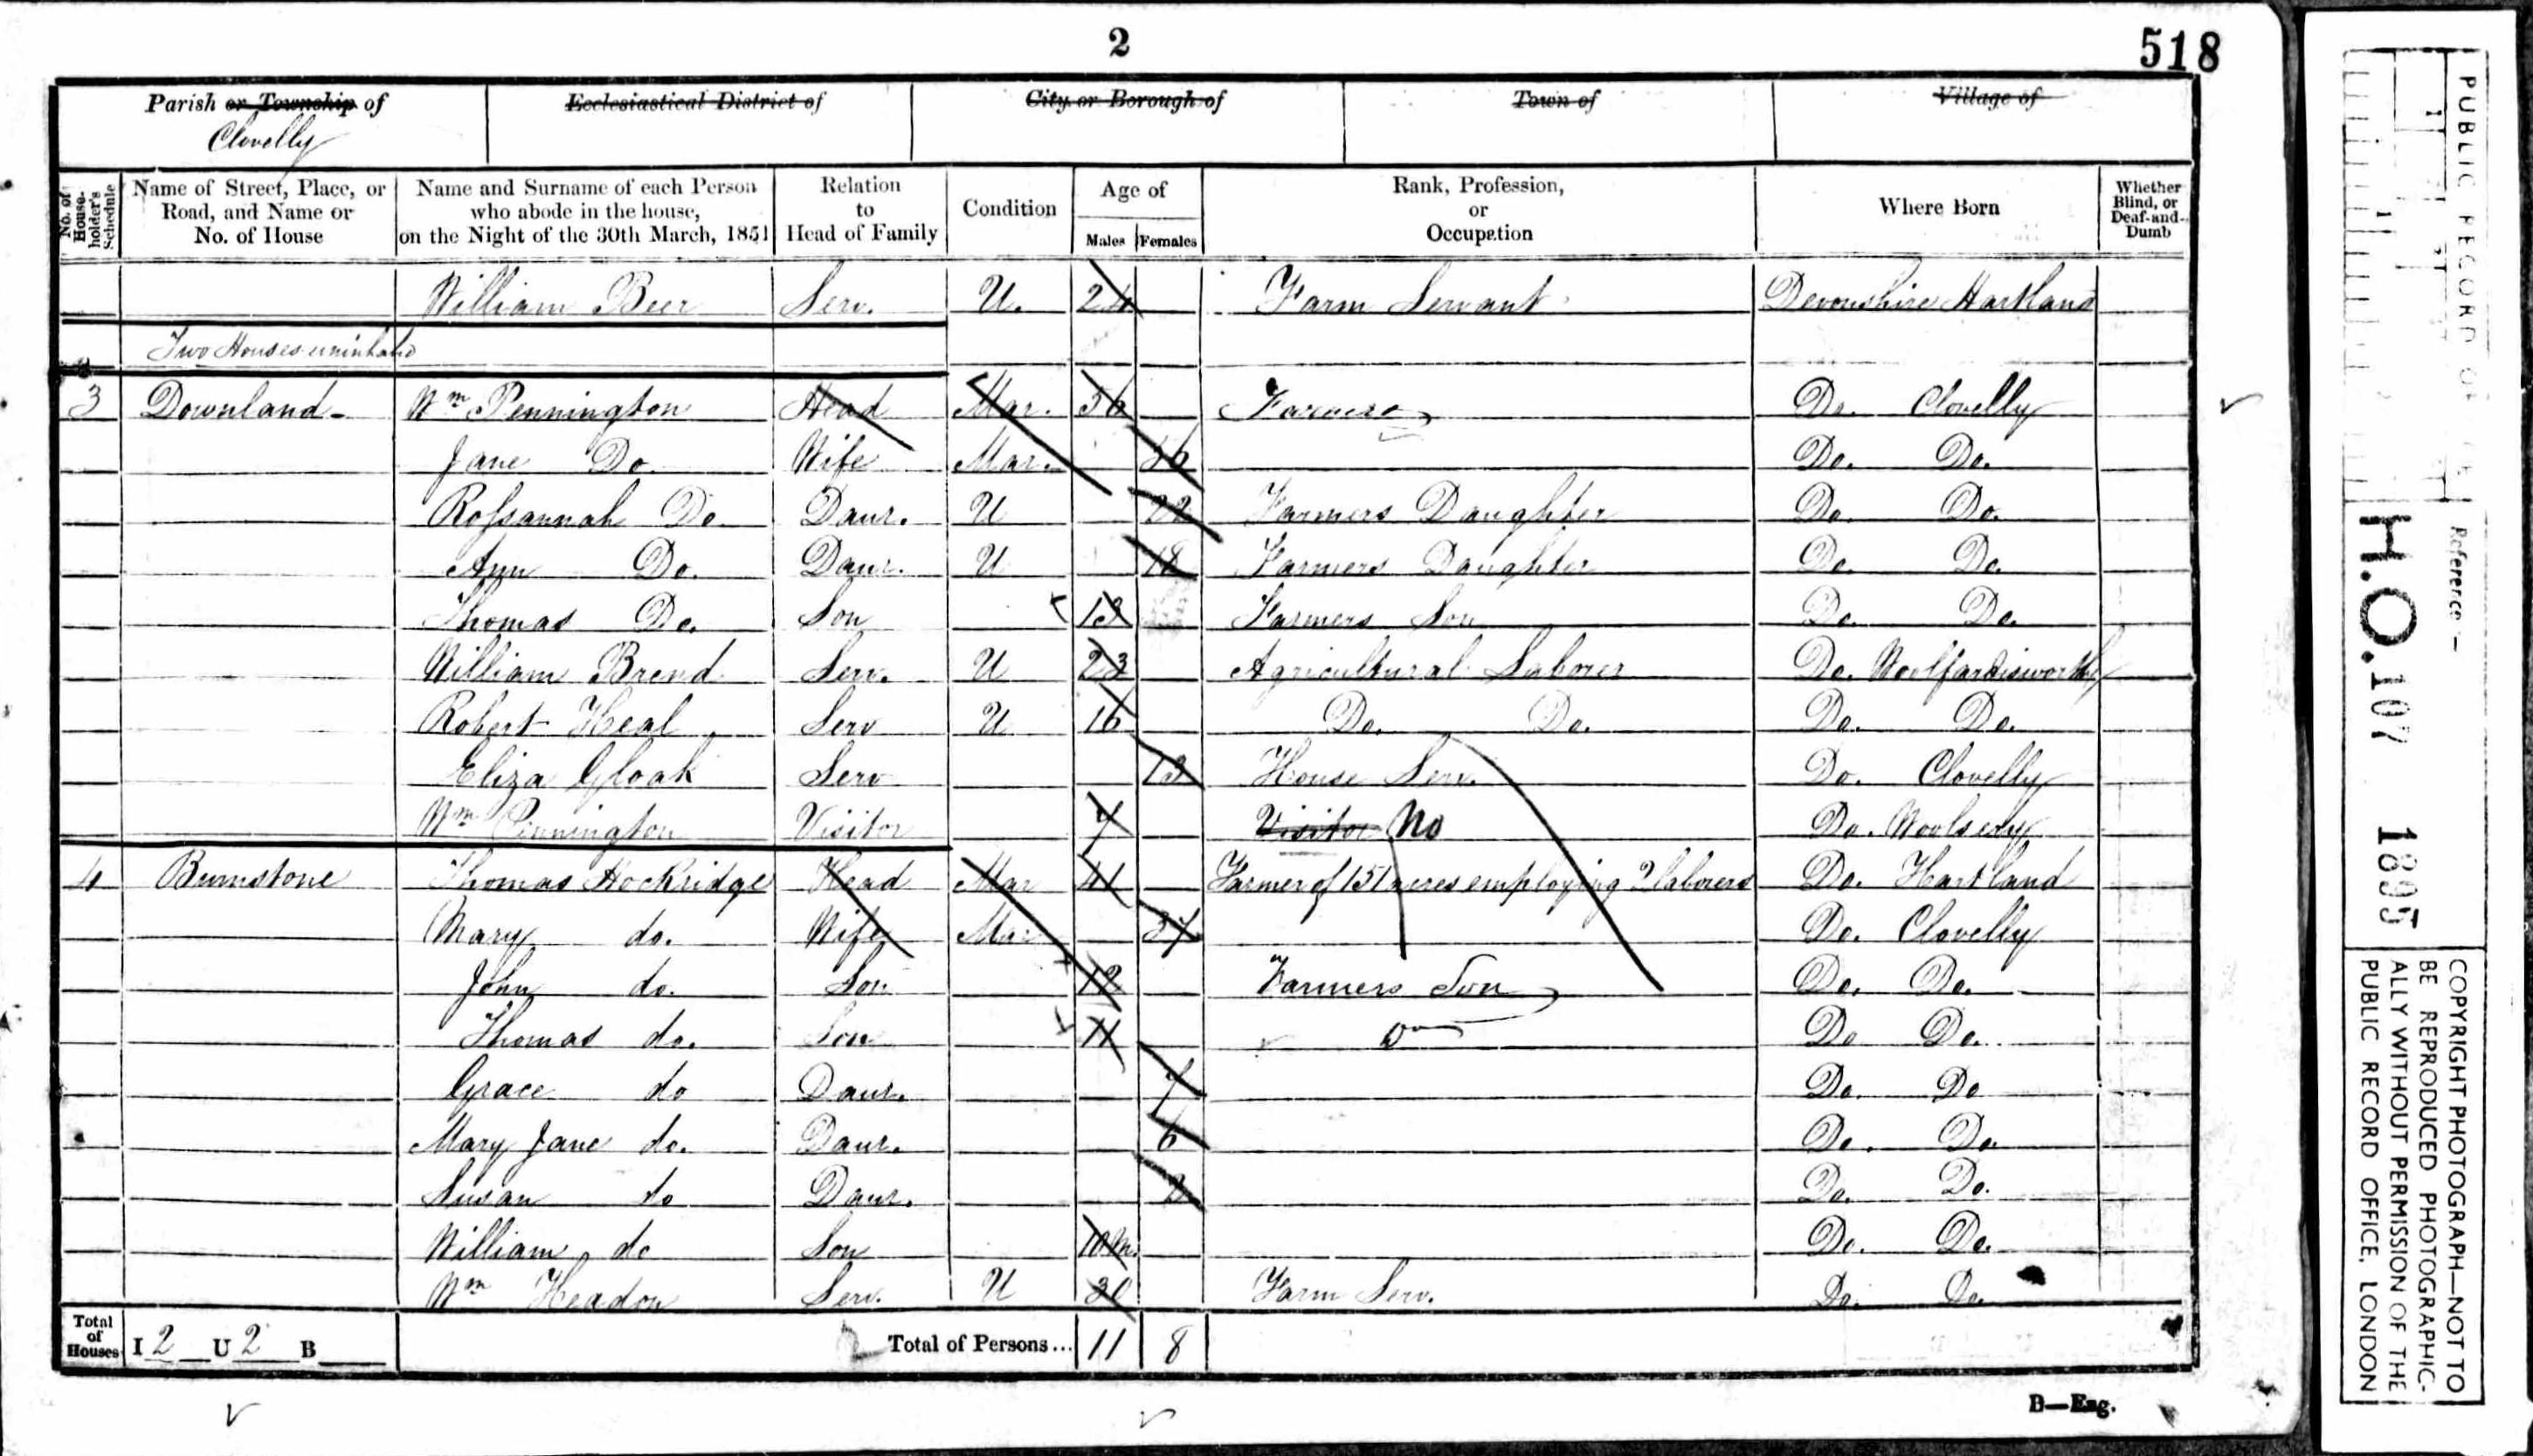 2
518
Parish or Township of
Clovelly
Ecclesiastical District of
City or Borough of
Town of
Village of
No. of House-holder's Schedule
Name of Street, Place, or Road, and Name or No. of House
Name and Surname of each Person who abode in the house, on the Night of the 30th March, 1851
Relation to Head of Family
Condition
Age of
Males Females
Rank, Profession, or Occupation
Where Born
Whether Blind, or Deaf-and-Dumb
William Beer Serv. U. 24 Farm Servant Devonshire Hartland
Two Houses uninhabd
3 Downland Wm Pennington Head Mar. 56 Do. Clovelly
Jane Do. Wife Mar. 56 Do. Do.
Rossannah Do Daur. U 22 Farmers Daughter Do. Do.
Ann Do. Daur. U 18 Farmers Daughter Do. Do.
Thomas Do. Son 13 Farmers Son Do. Do.
William Brend Serv. U 23 Agricultural Laborer Do. Woolfardisworthy
Robert Heal Serv U 16 Do. Do. Do. Do.
Eliza Gloak Serv 13 House Serv. Do. Clovelly
Wm Pennington Visitor 7 Visitor No Do. Woolsery
4 Burnstone Thomas Hockridge Head Mar 41 Farmer of 151 acres employing 2 laborers Do. Hartland
Mary do. Wife Mar 37 Do. Clovelly
John do. Son 12 Farmers Son Do. Do.
Thomas do. Son 11 Do Do.
Grace do Daur. 7 Do. Do
Mary Jane do. Daur. 6 Do. Do.
Susan do Daur. 2 Do. Do.
William do Son 10 m. Do. Do.
Wm Headon Serv. U 20 Farm Serv. Do. Do.
Total of Houses I 2 U 2 B Total of Persons... 11 8
D—Eng.
PUBLIC RECORD OFFICE
Reference:—
H.O. 107 1895
COPYRIGHT PHOTOGRAPH—NOT TO
BE REPRODUCED PHOTOGRAPHIC-
ALLY WITHOUT PERMISSION OF THE
PUBLIC RECORD OFFICE, LONDON